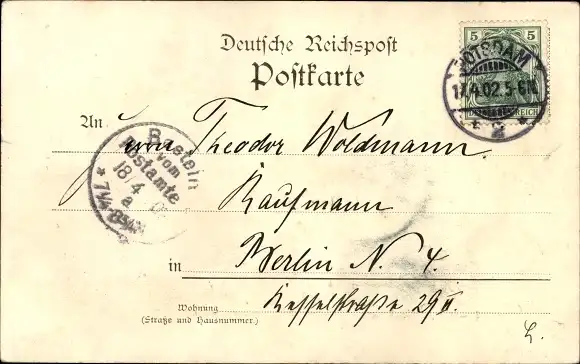 Deutsche Reichspost
Postkarte
5 5
POTSDAM
17.4.02. 5-6N.
* 2 *
REICH
An Herrn Theodor Woldmann.
Bestellt
vom
Postamte
18/4
* 7¼-8½V.
Kaufmann
in Berlin N. 4.
Wohnung
(Straße und Hausnummer.)
Kesselstraße 29 II.
L.